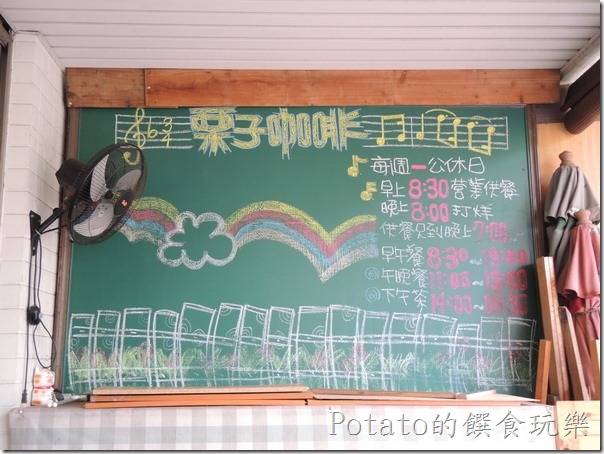 3
4
栗子咖啡
每週一公休日
早上8:30營業供餐
晚上8:00打烊
供餐只到晚上7:00
早午餐 8:30~
午晚餐
下午茶 14:00~
Potato的饌食玩樂